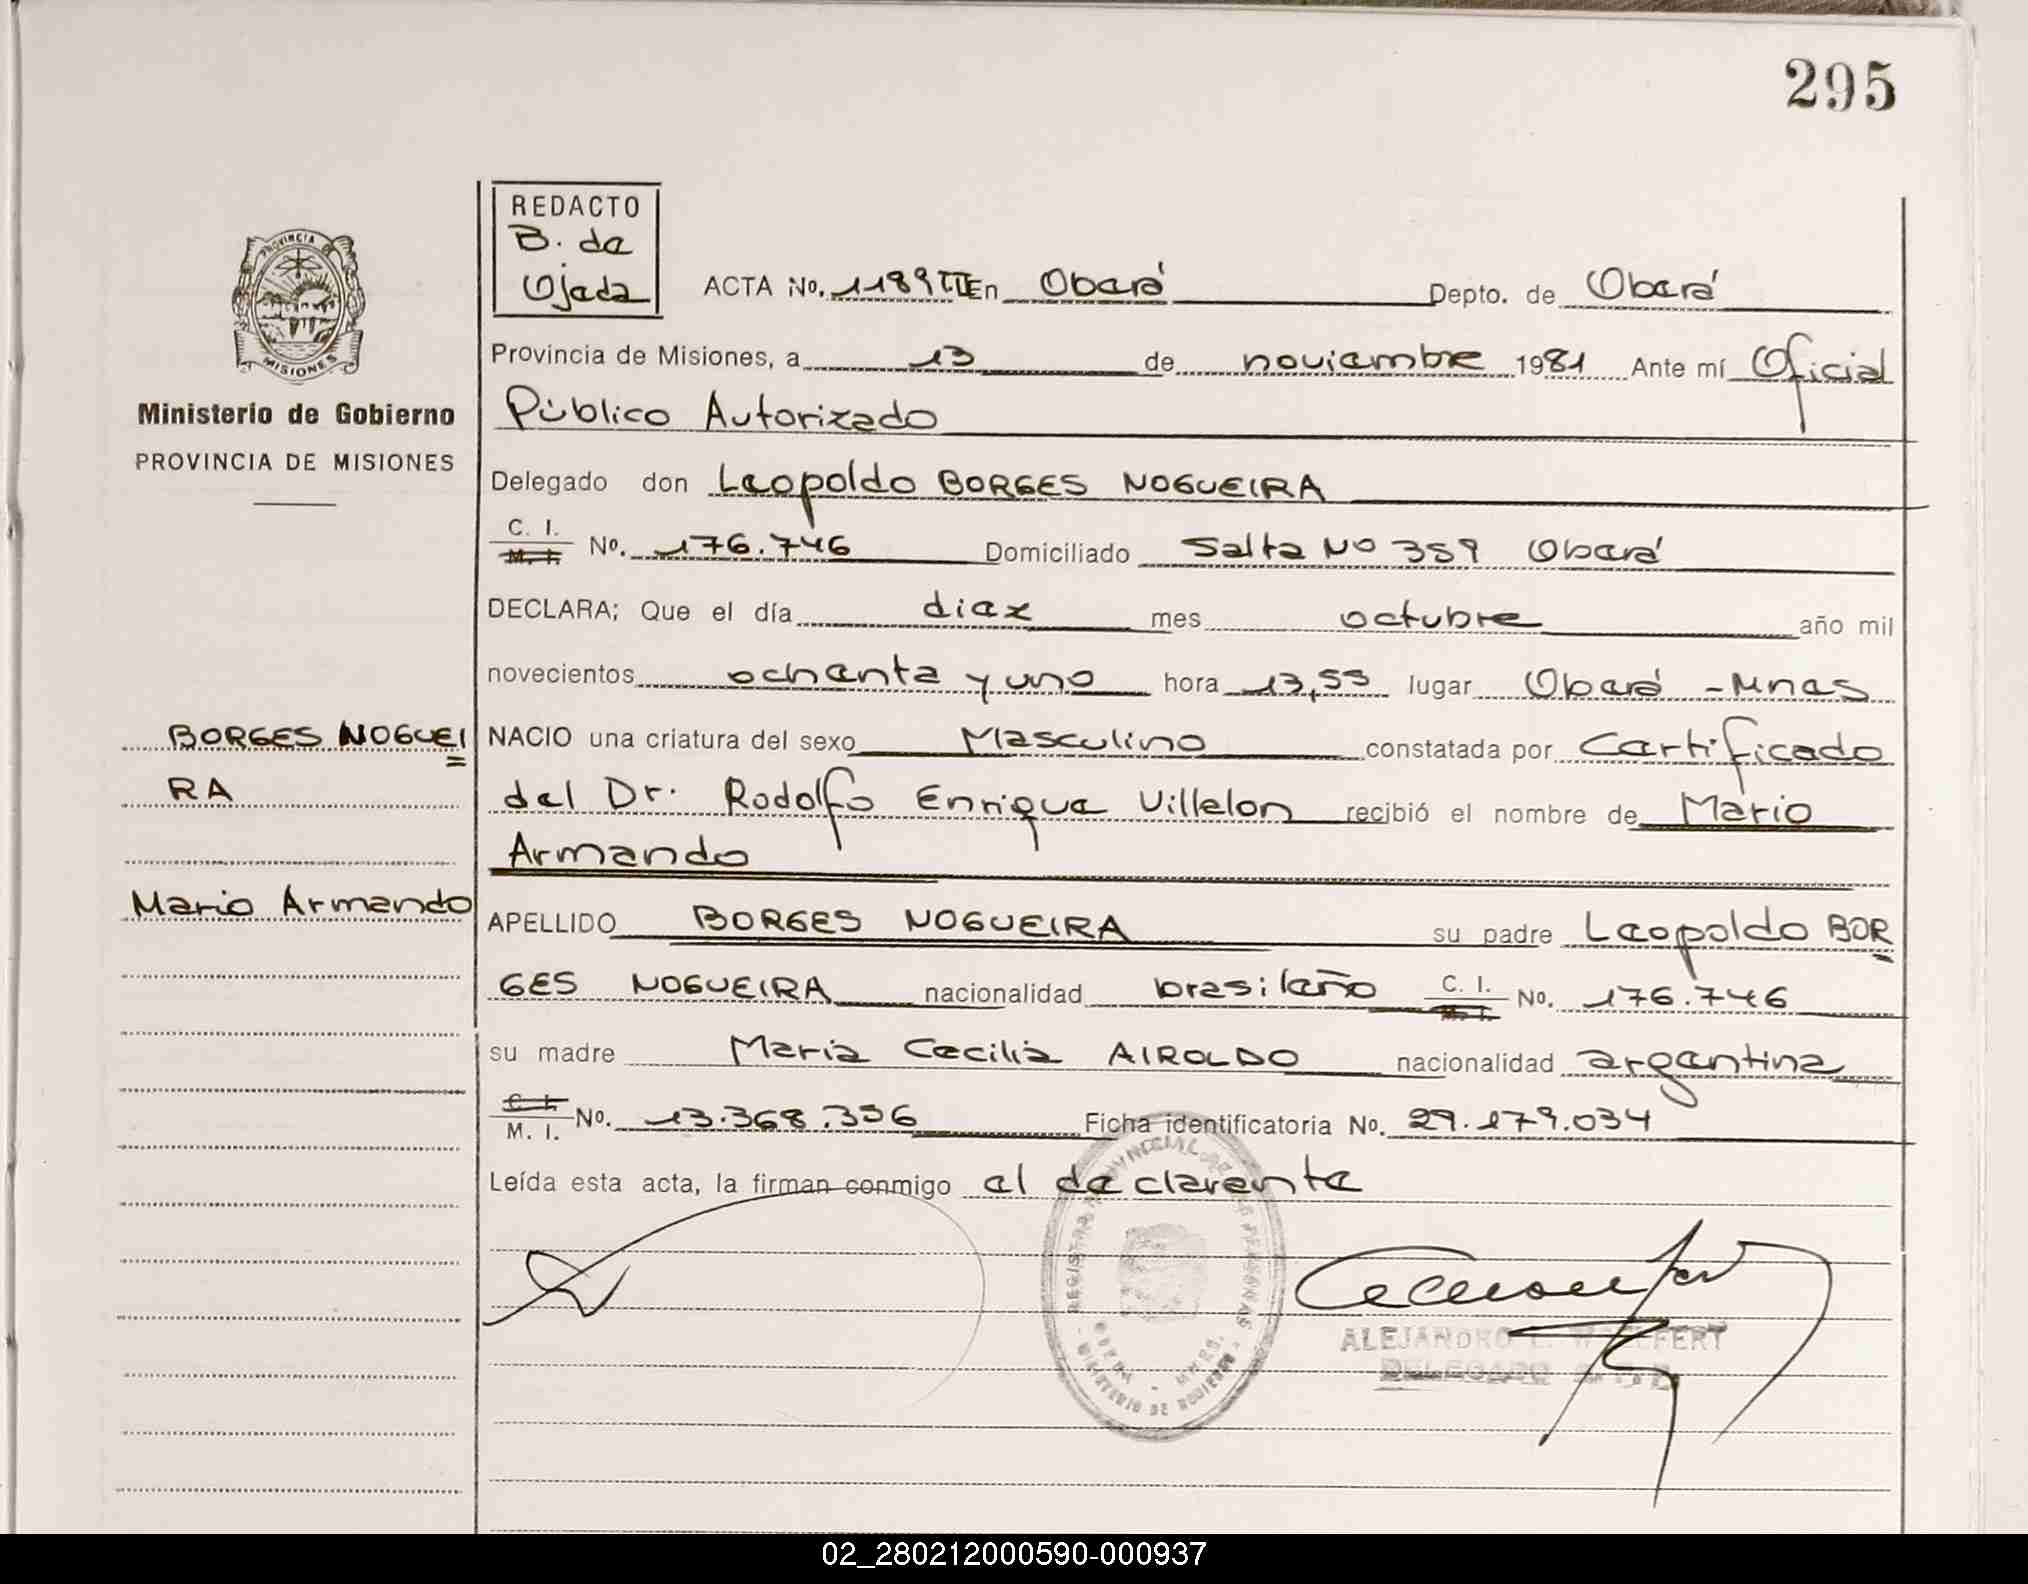 295
REDACTO
B. de
Ojeda
ACTA No. 1189 III En Oberá Depto. de Oberá
Provincia de Misiones, a 13 de noviembre 1981 Ante mí Oficial
Público Autorizado
Delegado don Leopoldo BORGES NOGUEIRA
C. I.
M. I. No. 176.746 Domiciliado Salta No 359 Oberá
DECLARA; Que el día diez mes octubre año mil
novecientos ochenta y uno hora 13,55 lugar Oberá - Mnes
NACIO una criatura del sexo Masculino constatada por Certificado
del Dr. Rodolfo Enrique Villalon recibió el nombre de Mario
Armando
APELLIDO BORGES NOGUEIRA su padre Leopoldo BOR
GES NOGUEIRA nacionalidad brasileño C. I. M. I. No. 176.746
su madre Maria Cecilia AIROLDO nacionalidad argentina
C. I.
M. I. No. 13.368.356 Ficha identificatoria No. 29.179.034
Leída esta acta, la firman conmigo el declarante
PROVINCIA DE
MISIONES
Ministerio de Gobierno
PROVINCIA DE MISIONES
BORGES NOGUEI
RA
Mario Armando
REGISTRO PROVINCIAL DE LAS PERSONAS
OBERA - MNES.
MINISTERIO DE GOBIERNO
ALEJANDRO
DELEGADO
02_280212000590-000937